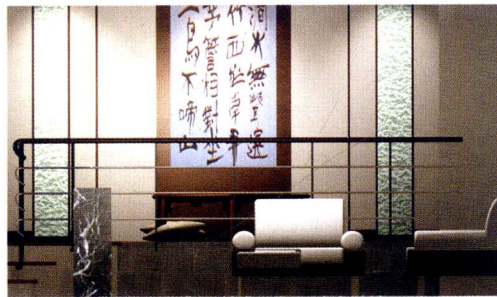 水無聲遶
竹西花草弄
茅簷相對坐
一鳥不啼山